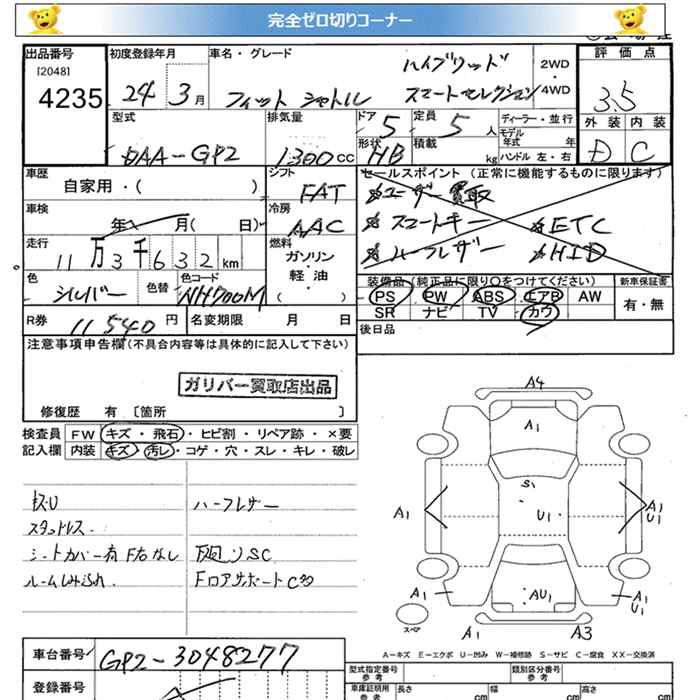 完全ゼロ切りコーナー
出品番号 初度登録年月 車名・グレード ハイブリッド 2WD・4WD 評価点
[2048]
4235 24 3月 フィット シャトル スマートセレクション 3.5
型式 排気量 ドア 5 定員 5 人 ディーラー・並行 外装 内装
モデル年式 年
DAA-GP2 1300cc 形状 HB 積載 kg ハンドル 左・右 D C
車歴 シフト セールスポイント(正常に機能するものに限ります)
自家用・( ) FAT ユーザー買取
車検 冷房 スマートキー ETC
年 月( 日) AAC ハーフレザー HID
走行 燃料
11万3千632km ガソリン・軽・油( )
色 シルバー 色替 色コード NH700M
装備品(純正品に限り○をつけてください) 新車保証書
PS PW ABS エアB AW 有・無
SR ナビ TV カワ
R券 11540円 名変期限 月 日 後日品
注意事項申告欄(不具合内容等は具体的に記入して下さい)
ガリバー買取店出品
修復歴 有〔箇所 〕
検査員 FW キズ・飛石・ヒビ割・リペア跡・×要
記入欄 内装 キズ・汚レ・コゲ・穴・スレ・キレ・破レ
ハーフレザー
スタッドレス
シートカバー有 F右なし SC
ルームしみ汚れ FロアサポートC
A4
A1
S1
A1 U1 A1
U1
A1 AU1 A1
スペア A1 A3
A-キズ E-エクボ U-凹み W-補修跡 S-サビ C-腐食 XX-交換済
車台番号 GP2-3048277
型式指定番号 類別区分番号
登録番号 車庫証明用 長さ cm 幅 cm 高さ cm